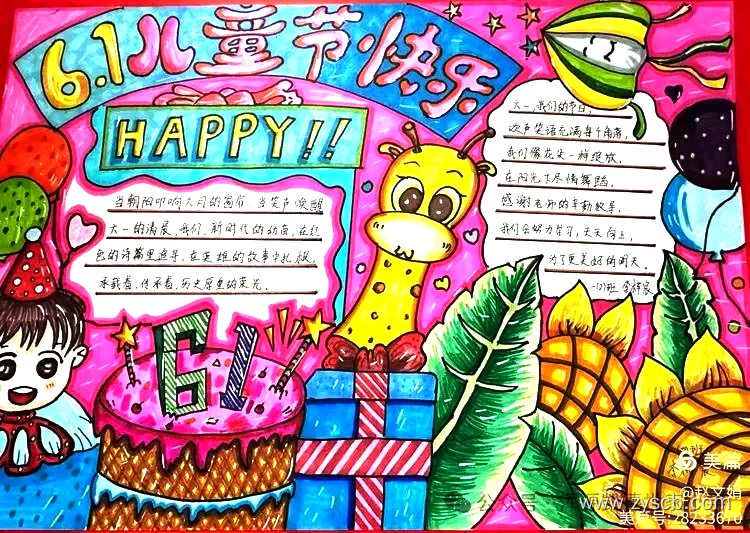 6.1儿童节快乐
HAPPY!!
当朝阳叩响六月的窗前 当笑声唤醒
六一的清晨,我们,新时代的幼苗,在红
色的诗篇里追寻,在英雄的故事中扎根,
承载着,传承着,历史厚重的荣光。
六一,我们的节日,
欢声笑语充满每个角落,
我们像花朵一样绽放,
在阳光下尽情舞蹈,
感谢老师的辛勤教导,
我们会努力学习,天天向上,
为了更美好的明天。
61
美篇
@赵文娟
公众号
www.zyscb.com
美篇号:28253610